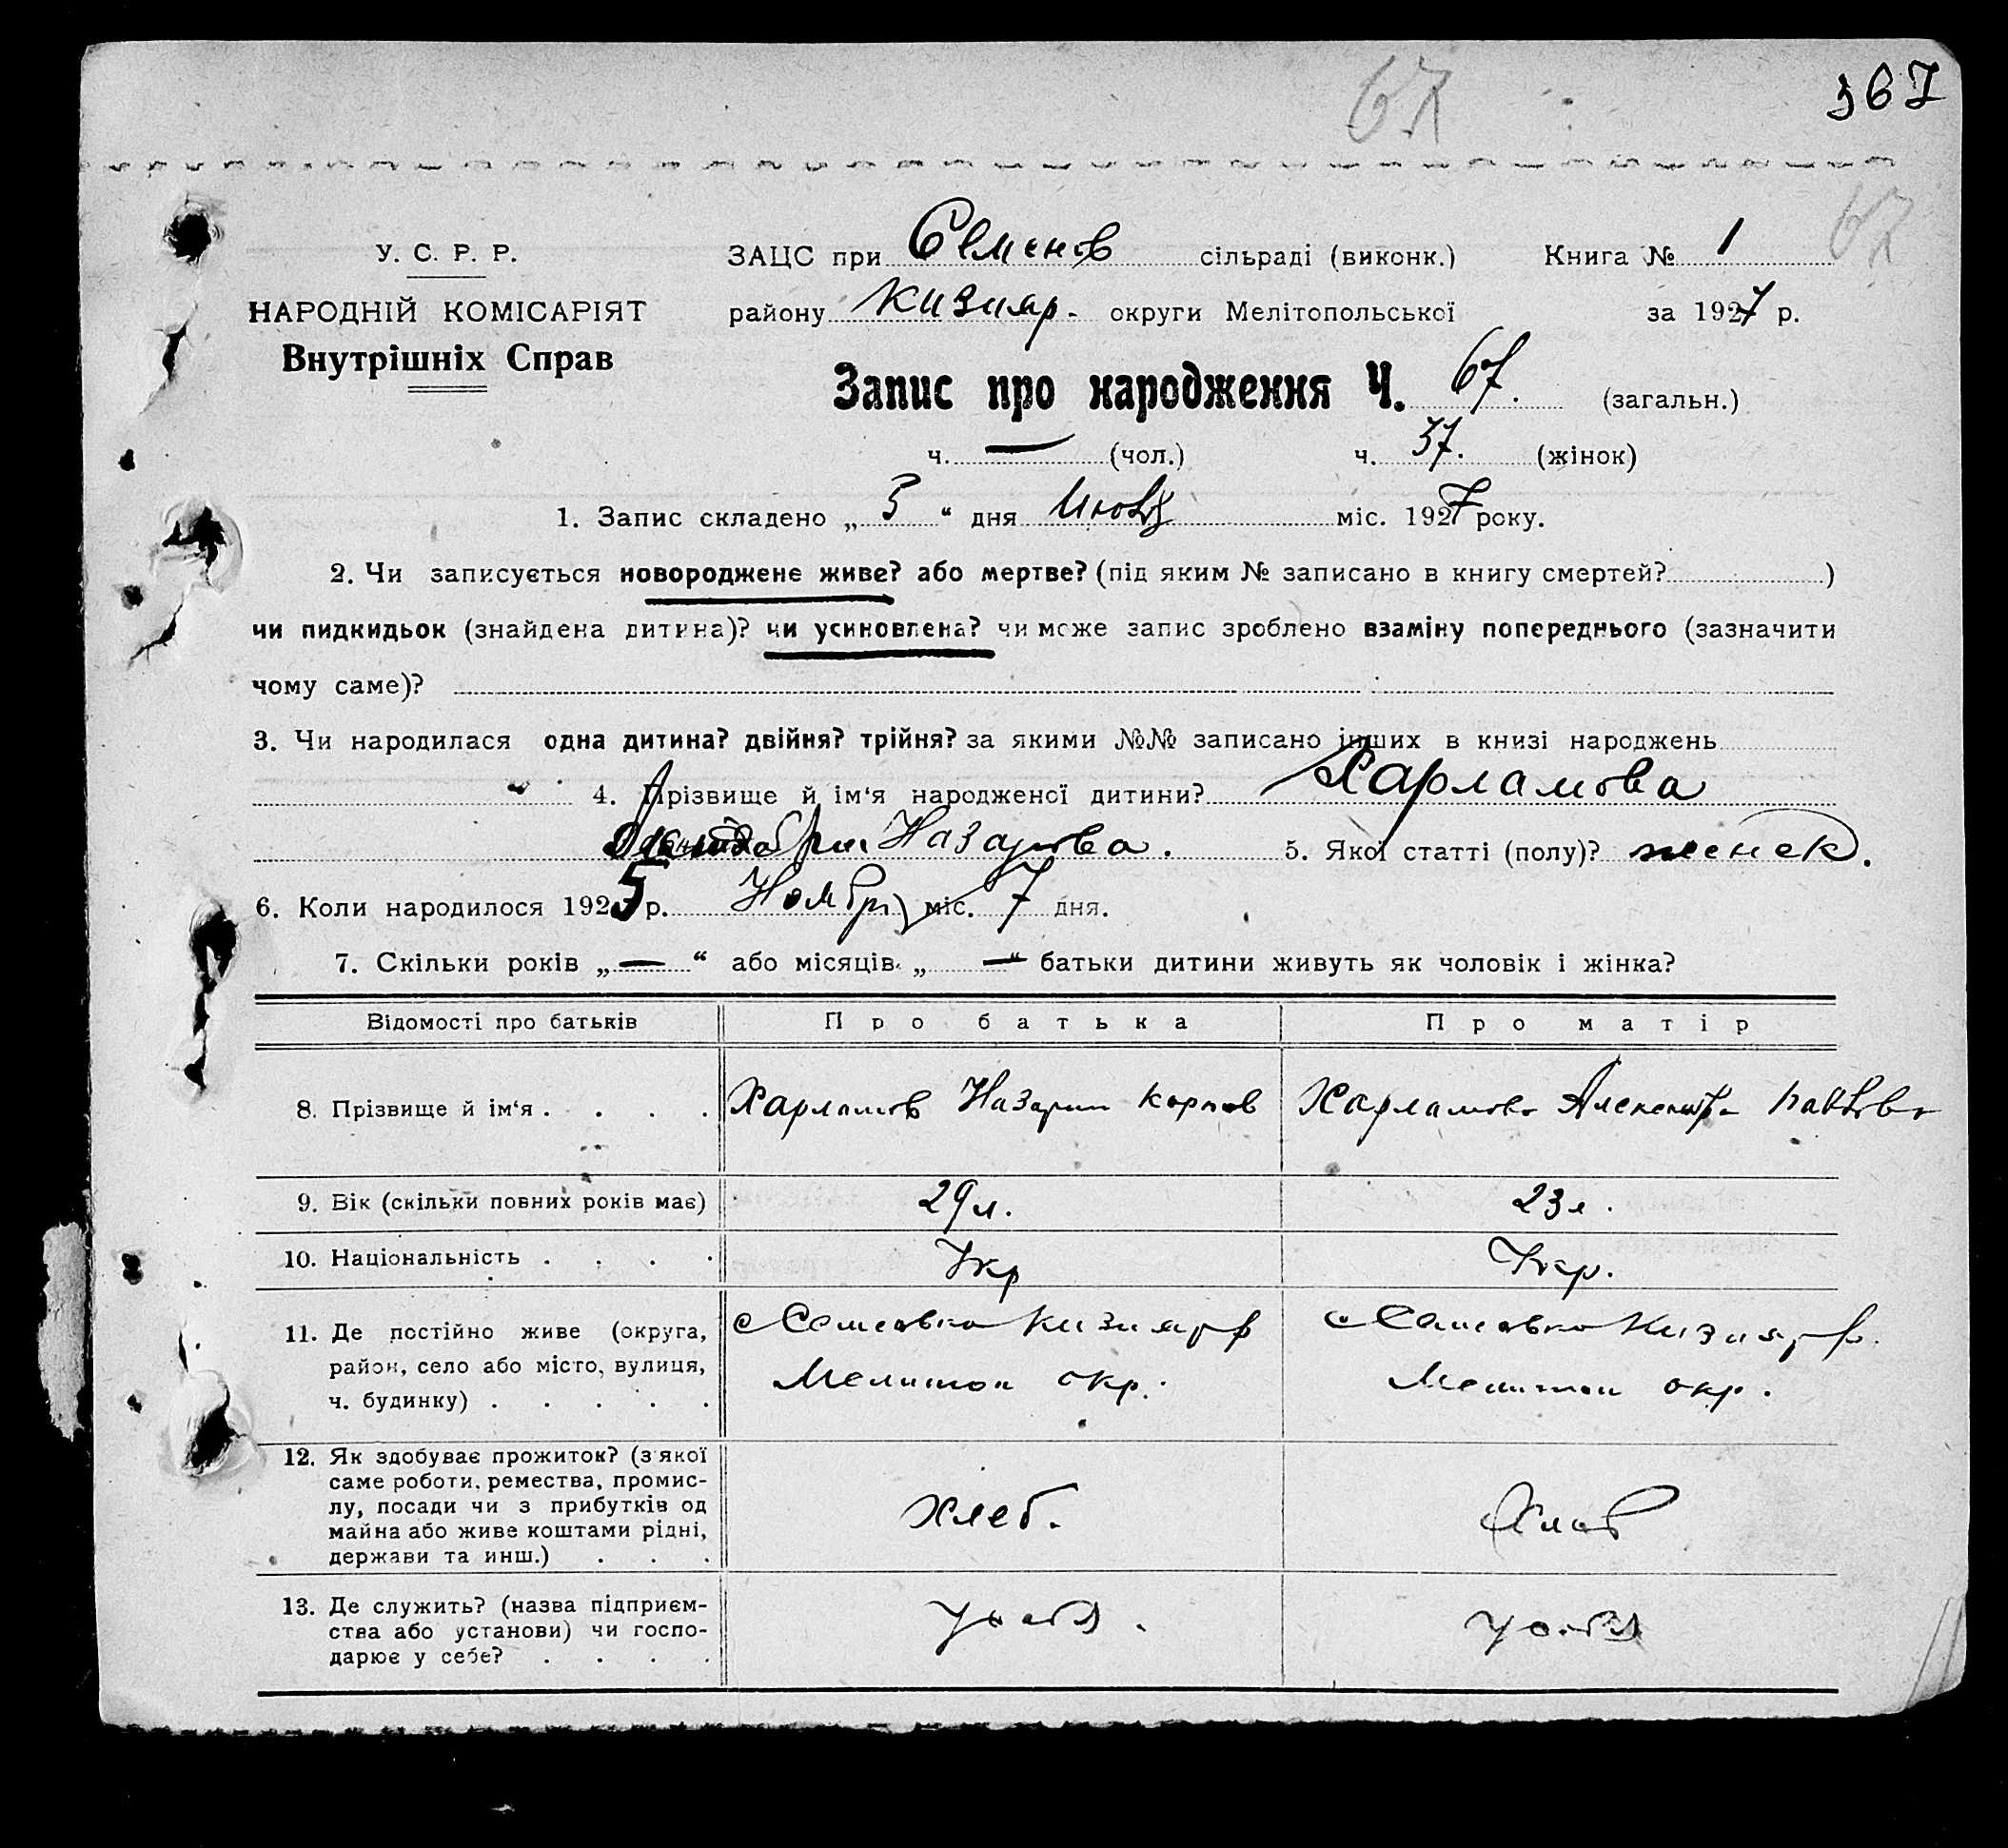 67
367
67
У. С. Р. Р.
НАРОДНІЙ КОМІСАРІЯТ
Внутрішніх Справ
ЗАЦС при Семенов сільраді (виконк.) Книга № 1
району Кизияр. округи Мелітопольської за 1927 р.
Запис про народження Ч. 67. (загальн.)
ч. — (чол.) ч. 37. (жінок)
1. Запис складено „ 5 “ дня міс. 1927 року.
2. Чи записується новороджене живе? або мертве? (під яким № записано в книгу смертей? )
чи пидкидьок (знайдена дитина)? чи усиновлена? чи може запис зроблено взаміну попереднього (зазначити
чому саме)?
3. Чи народилася одна дитина? двійня? трійня? за якими №№ записано інших в книзі народжень
4. Прізвище й ім‘я народженої дитини? Харламова
Назарова. 5. Якої статті (полу)? женск.
6. Коли народилося 1925 р. Ноября міс. 7 дня.
7. Скільки років „ — “ або місяців „ — “ батьки дитини живуть як чоловік і жінка?
Відомості про батьків Про батька Про матір
8. Прізвище й ім‘я . . . . Харламов Назарий Карпов Харламова Александра Павлова
9. Вік (скільки повних років має) 29 л. 23 л.
10. Національність . . . . Укр Укр.
11. Де постійно живе (округа, район, село або місто, вулиця, ч. будинку) . . . . .
с Семеовка Кизияр р с Семеовка Кизияр р.
Мелитоп окр. Мелитоп окр.
12. Як здобуває прожиток? (з якої
саме роботи, ремества, промис-
лу, посади чи з прибутків од
майна або живе коштами рідні,
держави та инш.) . . .
Хлеб. Хлеб
13. Де служить? (назва підприєм-
ства або установи) чи госпо-
дарює у себе? . . . .
у себя. у себя